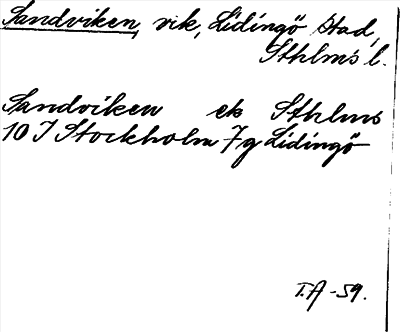 Sandviken, vik, Lidingö stad,
Sthlms l.
Sandviken ek Sthlms
10 I Stockholm 7g Lidingö
T.A -59.